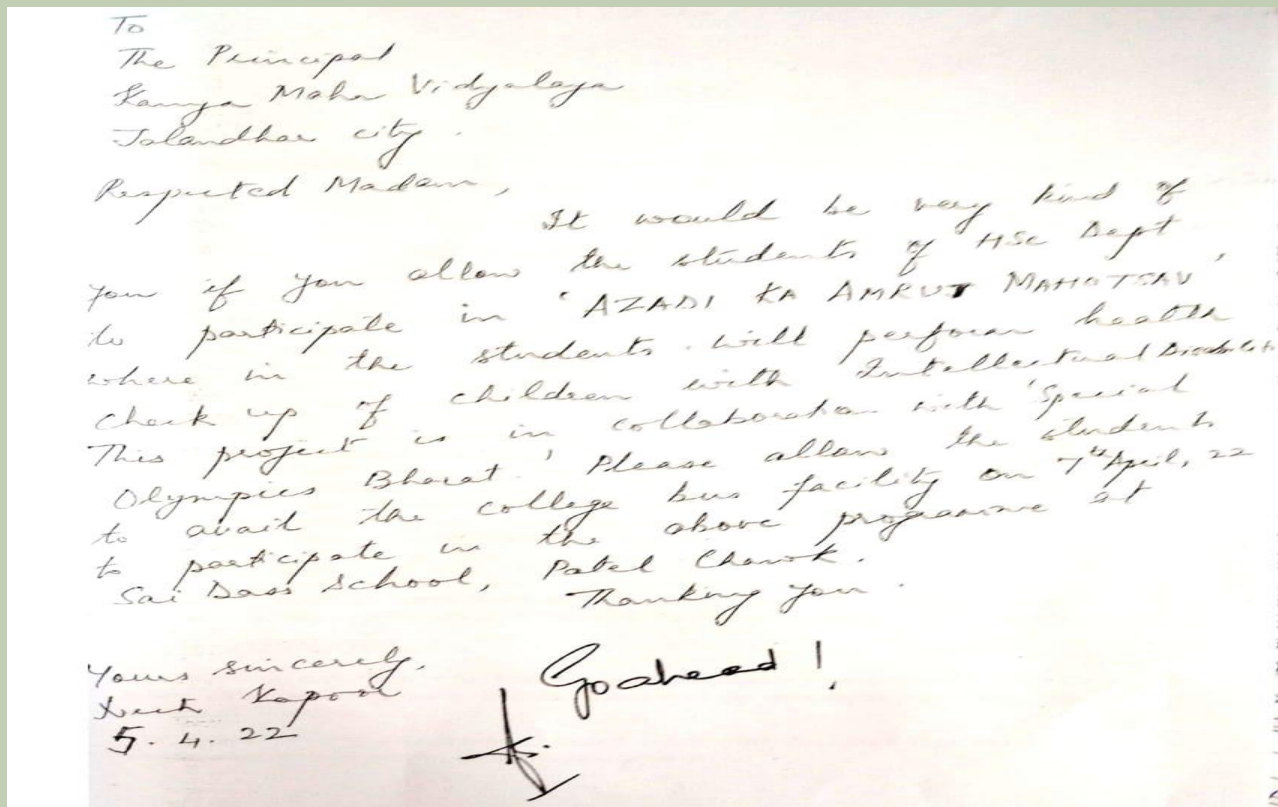 To
The Principal
Kanya Maha Vidyalaya
Jalandhar city.
Respected Madam,
It would be very kind of
you if you allow the students of HSc Dept.
to participate in 'AZADI KA AMRUT MAHOTSAV',
where in the students will perform health
check up of children with Intellectual
This project is in collaboration with 'Special
Olympics Bharat.' Please allow the students
to avail the college bus facility on 7th April, 22
to participate in the above programme at
Sai Dass School, Patel Chowk.
Thanking you.
Yours sincerely,
Kapoor
5.4.22
Go ahead!